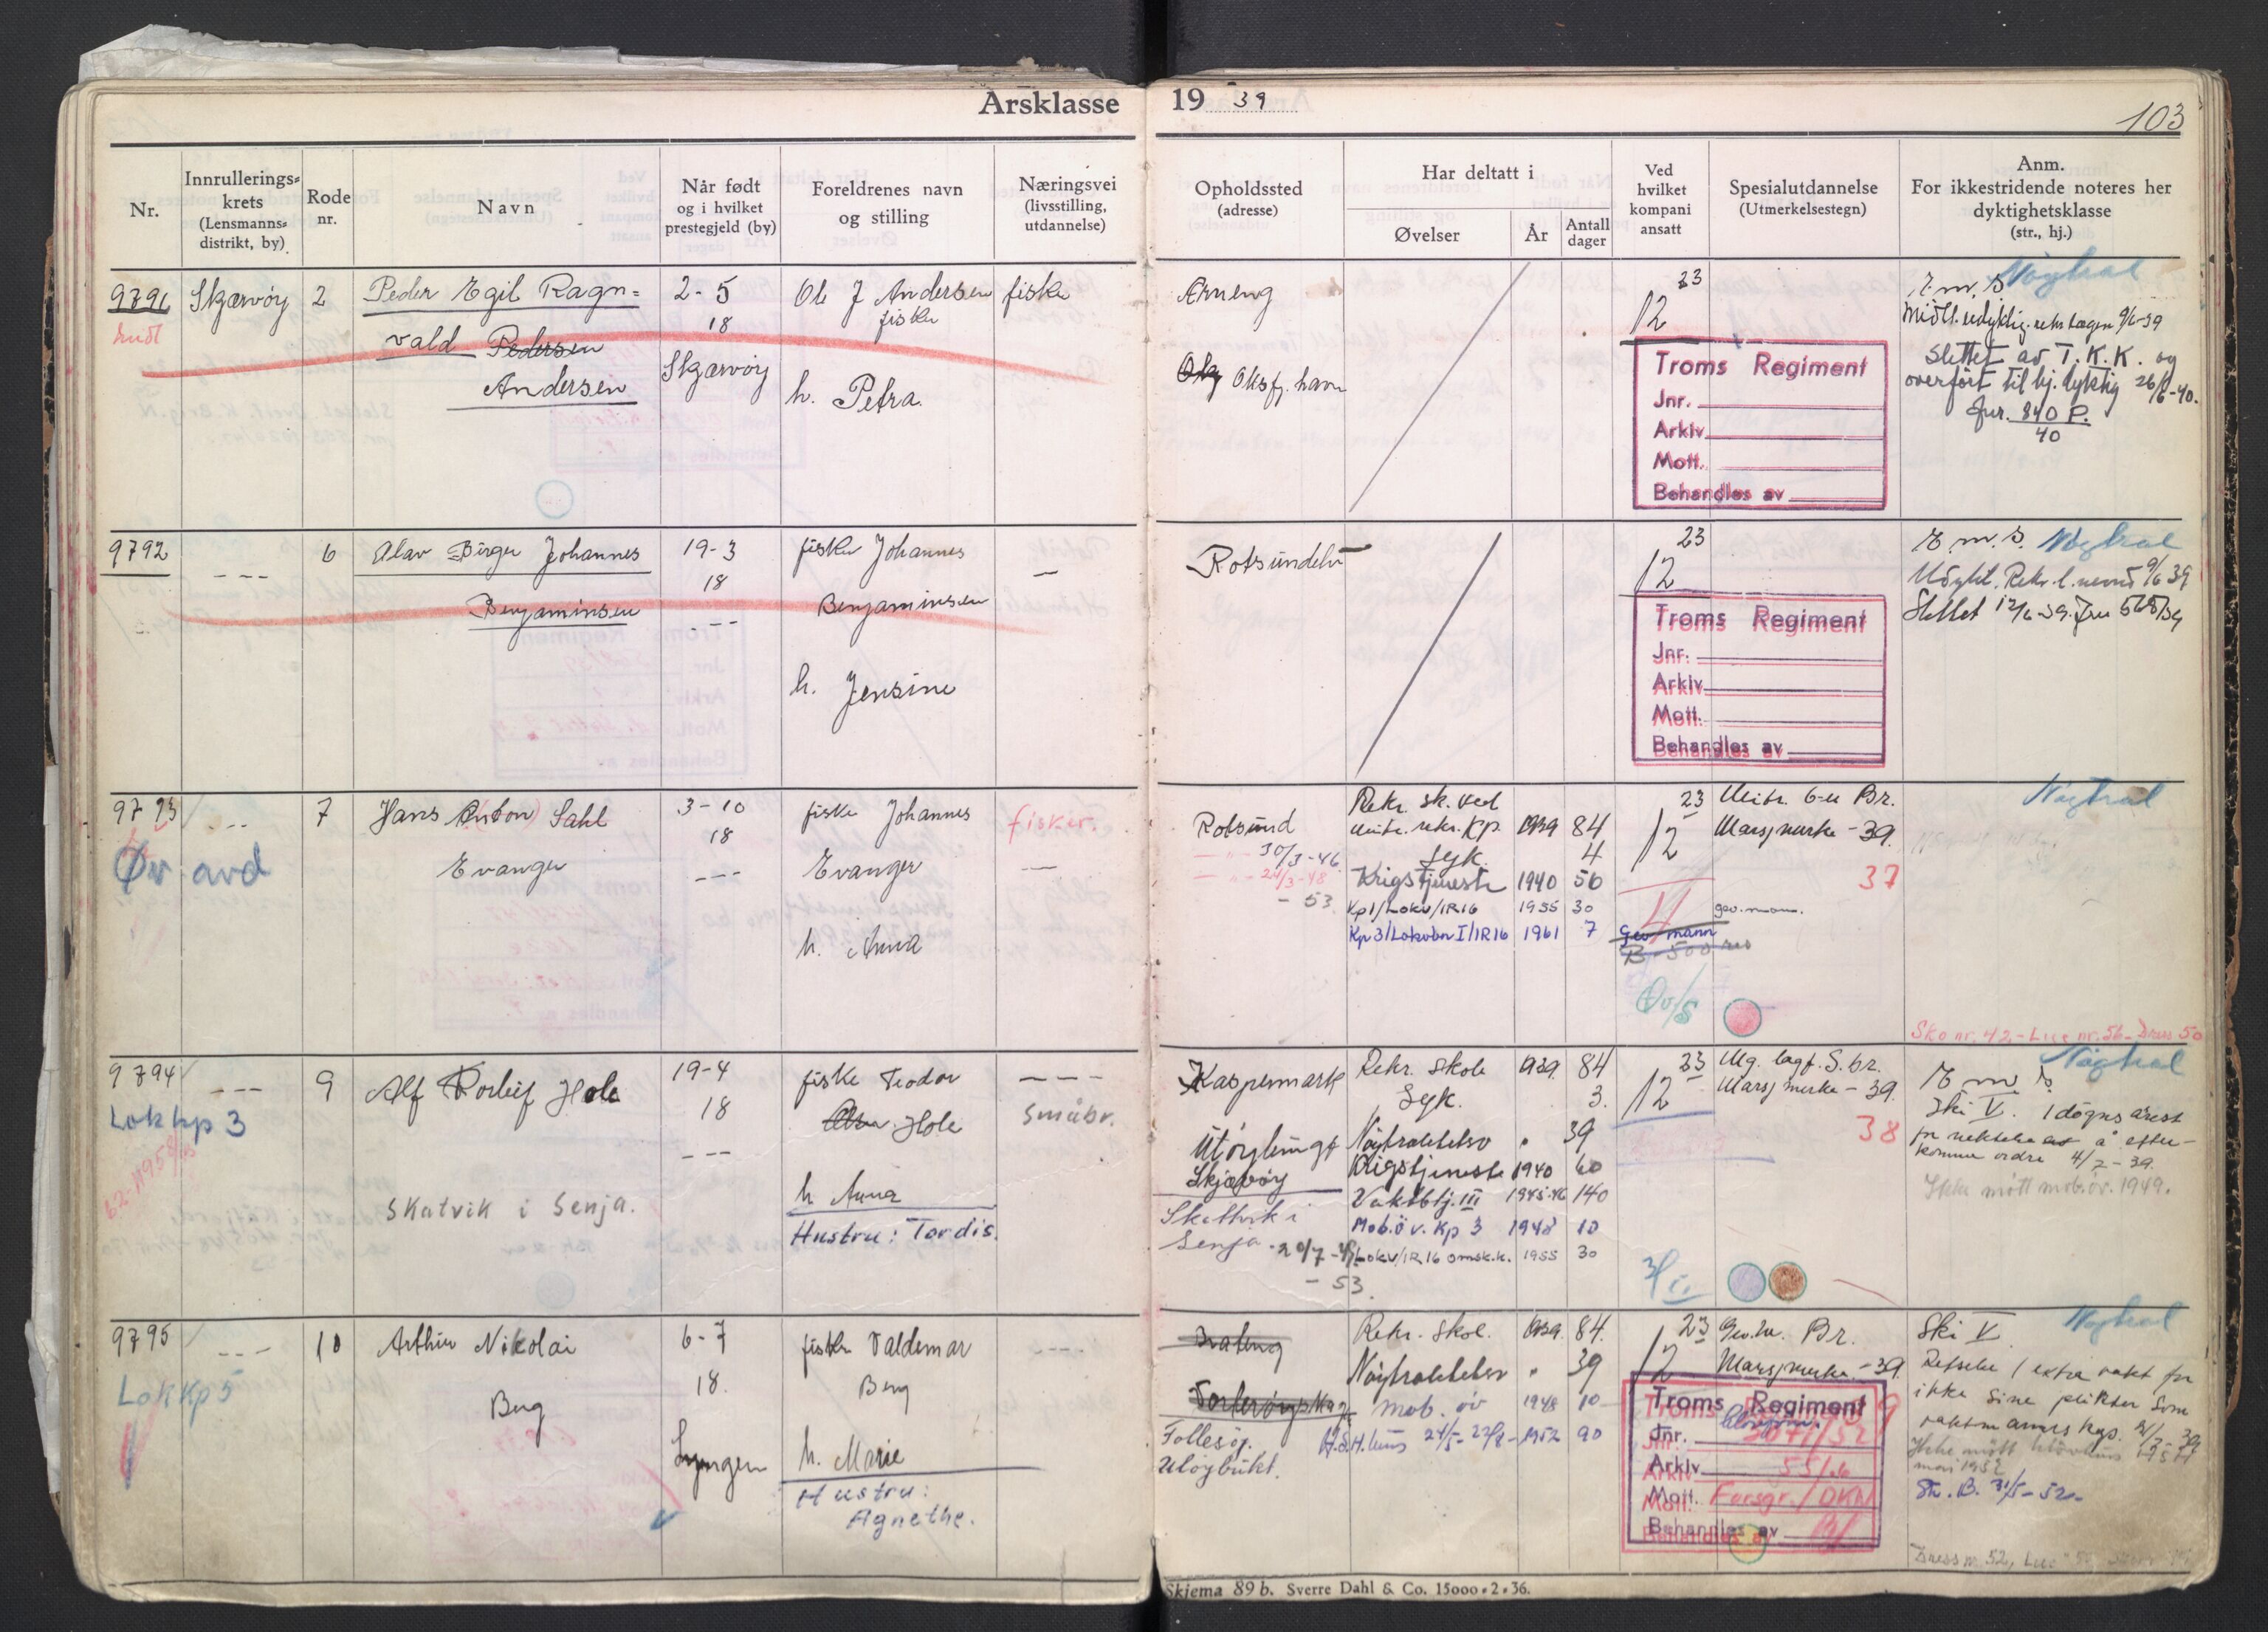 Årsklasse 19 39
103
Nr.
Innrullerings-
krets
(Lensmanns-
distrikt, by)
Rode
nr.
Navn
Når født
og i hvilket
prestegjeld (by)
Foreldrenes navn
og stilling
Næringsvei
(livsstilling,
utdannelse)
Opholdssted
(adresse)
Har deltatt i
Øvelser
År
Antall
dager
Ved
hvilket
kompani
ansatt
Spesialutdannelse
(Utmerkelsestegn)
Anm.
For ikkestridende noteres her
dyktighetsklasse
(str., hj.)
9791
Skjærvøy
2
Peder Egil Ragn=
vald Pedersen
Andersen
2-5
18
Skjærvøy
Ole J Andersen
fisker
h. Petra.
fisker
Arneng
Oksfj. havn
23
12
Troms Regiment
Jnr.
Arkiv
Mott.
Behandles av
Nøytral
E.m.s.
slettet av T.K.K. og
overført til hj. dyktig 26/6-40.
Jnr. 840 P.
40
9792
---
6
Olav Birger Johannes
Benjaminsen
19-3
18
---
fisker Johannes
Benjaminsen
h. Jensine
—
Rotsundelv
23
12
Troms Regiment
Jnr.
Arkiv
Mott.
Behandles av
E.m.s. Nøytral
Slettet 12/6-39. Jnr 568/39
9793
Øv avd
---
7
Hans Anton Sahl
Evanger
3-10
18
---
fisker Johannes
Evanger
h. Anna
fisker.
—
Rotsund
30/3-46
24/3-48
- 53
Rekr. sk. ved
mitr. rekr. Kp. 1939 84
Syk. 4
Krigstjeneste 1940 50
Kp1/Lokv/IR16 1955 30
Kp3/Lokvbn I/IR16 1961 7
23
12
Gev mann
B-500 res
Øv/S
Mitr. 6-u Br.
Marsjmerke -39.
37
gev. man.
Nøytral
Sko nr. 42 - Lue nr. 56 - Dress 50
9794
Lok kp 3
---
9
Alf Torleif Hole
Skatvik i Senja.
19-4
18
---
fisker Teodor
Hole
h Anna
Hustru: Tordis.
---
Småbr.
Kaspermark
Skjærvøy
Skattvik i
Senja 20/7-48
- 53.
Rekr. Skole 1939. 84
Syk. 3.
Nøytralitetsv " 39
Krigstjeneste 1940 60
Vaktbtj. III 1945-46 140
Mob.öv. Kp 3 1948 10
Lokv/IR16 omsk.k. 1955 30
23
12
Mg. lagf. S. br.
Marsj merke - 39.
38
Nøytral
E.m.s.
Ski V. 1 døgns arest
for nektelse av å efter-
komme ordre 4/7-39.
Ikke møtt mob.öv. 1949.
9795
Lok Kp 5
---
10
Arthur Nikolai
Berg
6-7
18.
Lyngen
fisker Valdemar
Berg
h. Marie
Hustru:
Agnethe.
----
Follesøy.
Uløybukt.
Rekr. Skol. 1939. 84.
Nøytralitetsv " 39
mob. öv 1948 10
24/5-22/8-1952 90
23
12
Gev.m. Br.
Marsjmerke -39.
Troms Regiment
Jnr. 3071/52
Arkiv 551.6
Mott. Forsgr./DKN
Behandles av
Nøytral
Ski V
Refselse 1 extra vakt for
ikke sine plikter som
mai 1952
Str. B. 31/5-52-
Dress nr. 52, Lue
Skjema 89 b. Sverre Dahl & Co. 15000 • 2 • 36.